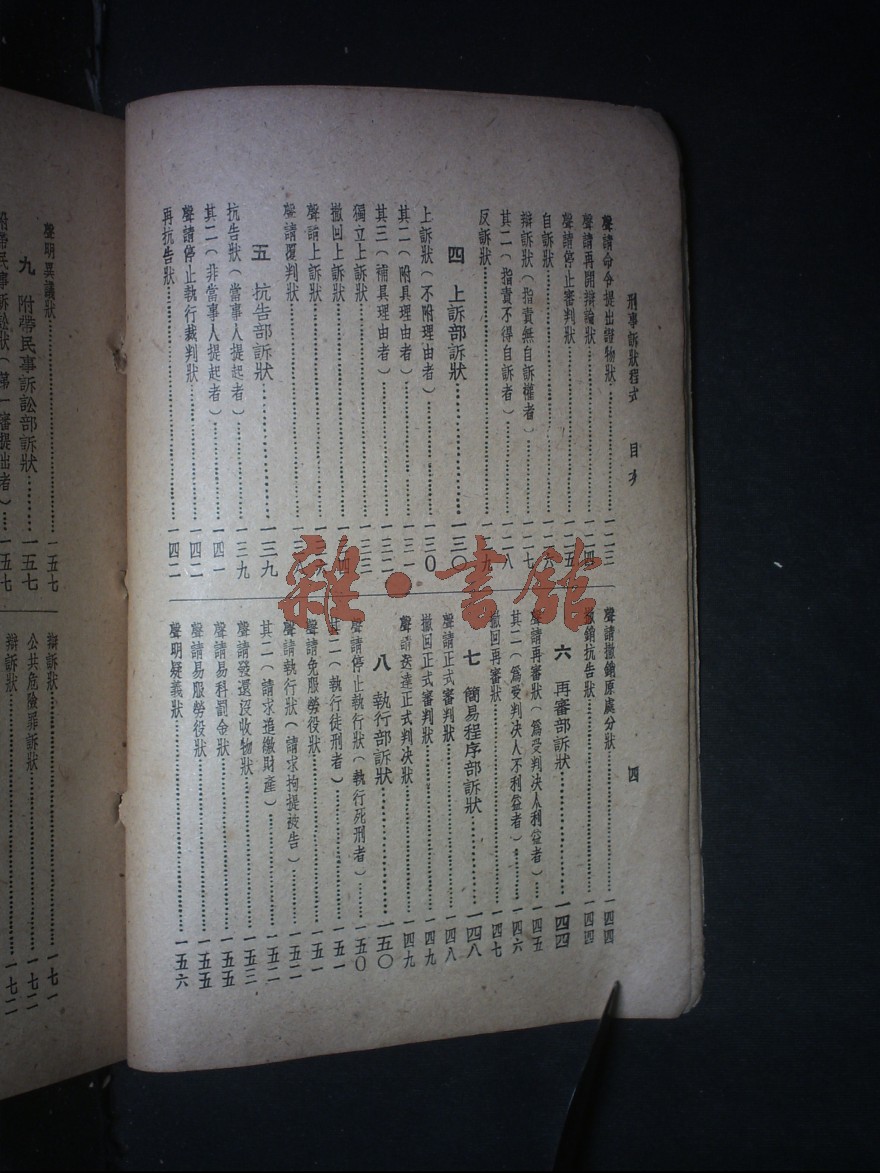 刑事訴狀程式 目次 四
聲請命令提出證物狀……一二三
聲請再開辯論狀……一二四
聲請停止審判狀……一二五
自訴狀……一二六
辯訴狀(指責無自訴權者)……一二七
其二(指責不得自訴者)……一二八
反訴狀……九
四 上訴部訴狀……一三〇
上訴狀(不附理由者)……一三〇
其二(附具理由者)……一三一
其三(補具理由者)……一三二
獨立上訴狀……一三三
撤回上訴狀……四
聲請上訴狀……一
聲請覆判狀……一三八
五 抗告部訴狀……一三九
抗告狀(當事人提起者)……一三九
其二(非當事人提起者)……一四一
聲請停止執行裁判狀……一四二
再抗告狀……一四二
聲請撤銷原處分狀……一四四
撤銷抗告狀……一四四
六 再審部訴狀……一四四
聲請再審狀(爲受判决人利益者)……一四五
其二(爲受判决人不利益者)……一四六
撤回再審狀……一四七
七 簡易程序部訴狀……一四八
聲請正式審判狀……一四八
撤回正式審判狀……一四九
聲請送達正式判决狀……一四九
八 執行部訴狀……一五〇
聲請停止執行狀(執行死刑者)……一五〇
其二(執行徒刑者)……一五一
聲請免服勞役狀……一五一
聲請執行狀(請求拘提被告)……一五二
其二(請求追繳財產)……一五二
聲請發還沒收物狀……一五三
聲請易科罰金狀……一五五
聲請易服勞役狀……一五五
聲明疑義狀……一五六
聲明異議狀……一五七
九 附帶民事訴訟部訴狀……一五七
附帶民事訴訟狀(第一審提出者)……一五七
辯訴狀……一七一
公共危險罪訴狀……一七二
辯訴狀……一七二
雜·書館